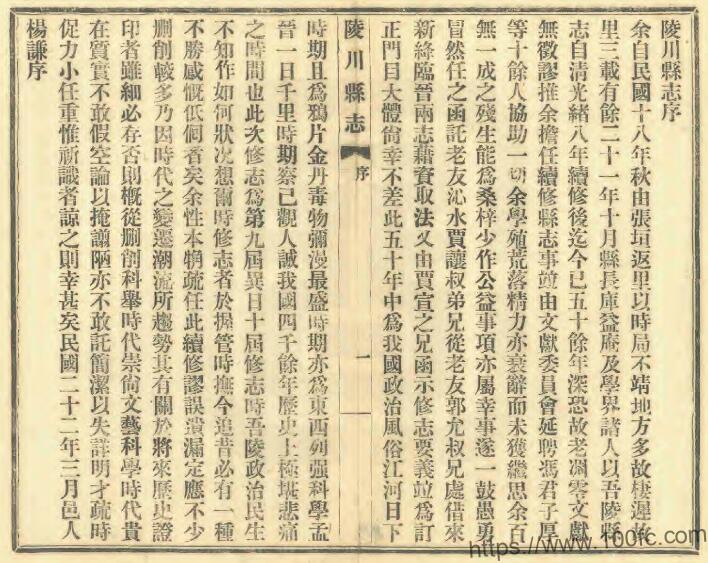 陵川縣志序
余自民國十八年秋由張垣返里以時局不靖地方多故棲遲故
里三載有餘二十一年十月縣長庫益庵及學界諸人以吾陵縣
志自清光緒八年續修後迄今已五十餘年深恐故老凋零文獻
無徵謬推余擔任續修縣志事竝由文獻委員會延聘馮君子厚
等十餘人協助一切余學殖荒落精力亦衰辭而未獲繼思余百
無一成之殘生能爲桑梓少作公益事項亦屬幸事遂一鼓愚勇
冒然任之函託老友沁水賈讓叔弟兄從老友郭允叔兄處借來
新絳臨晉兩志藉資取法又由賈宣之兄函示修志要義竝爲訂
正門目大體尙幸不差此五十年中爲我國政治風俗江河日下
陵川縣志
序
一
時期且爲鴉片金丹毒物彌漫最盛時期亦爲東西列强科學孟
晉一日千里時期察己觀人誠我國四千餘年歷史上極堪悲痛
之時間也此次修志爲第九屆異日十屆修志時吾陵政治民生
不知作如何狀况想爾時修志者於握管時撫今追昔必有一種
不勝感慨低徊者矣余性本犕疏任此續修謬誤遺漏定應不少
删削較多乃因時代之變遷潮流所趨勢其有關於將來歷史證
印者雖細必存否則概從删削科舉時代崇尙文藝科學時代貴
在質實不敢假空論以掩譾陋亦不敢託簡潔以失詳明才疏時
促力小任重惟祈識者諒之則幸甚矣民國二十二年三月邑人
楊謙序
https://www.100fc.com